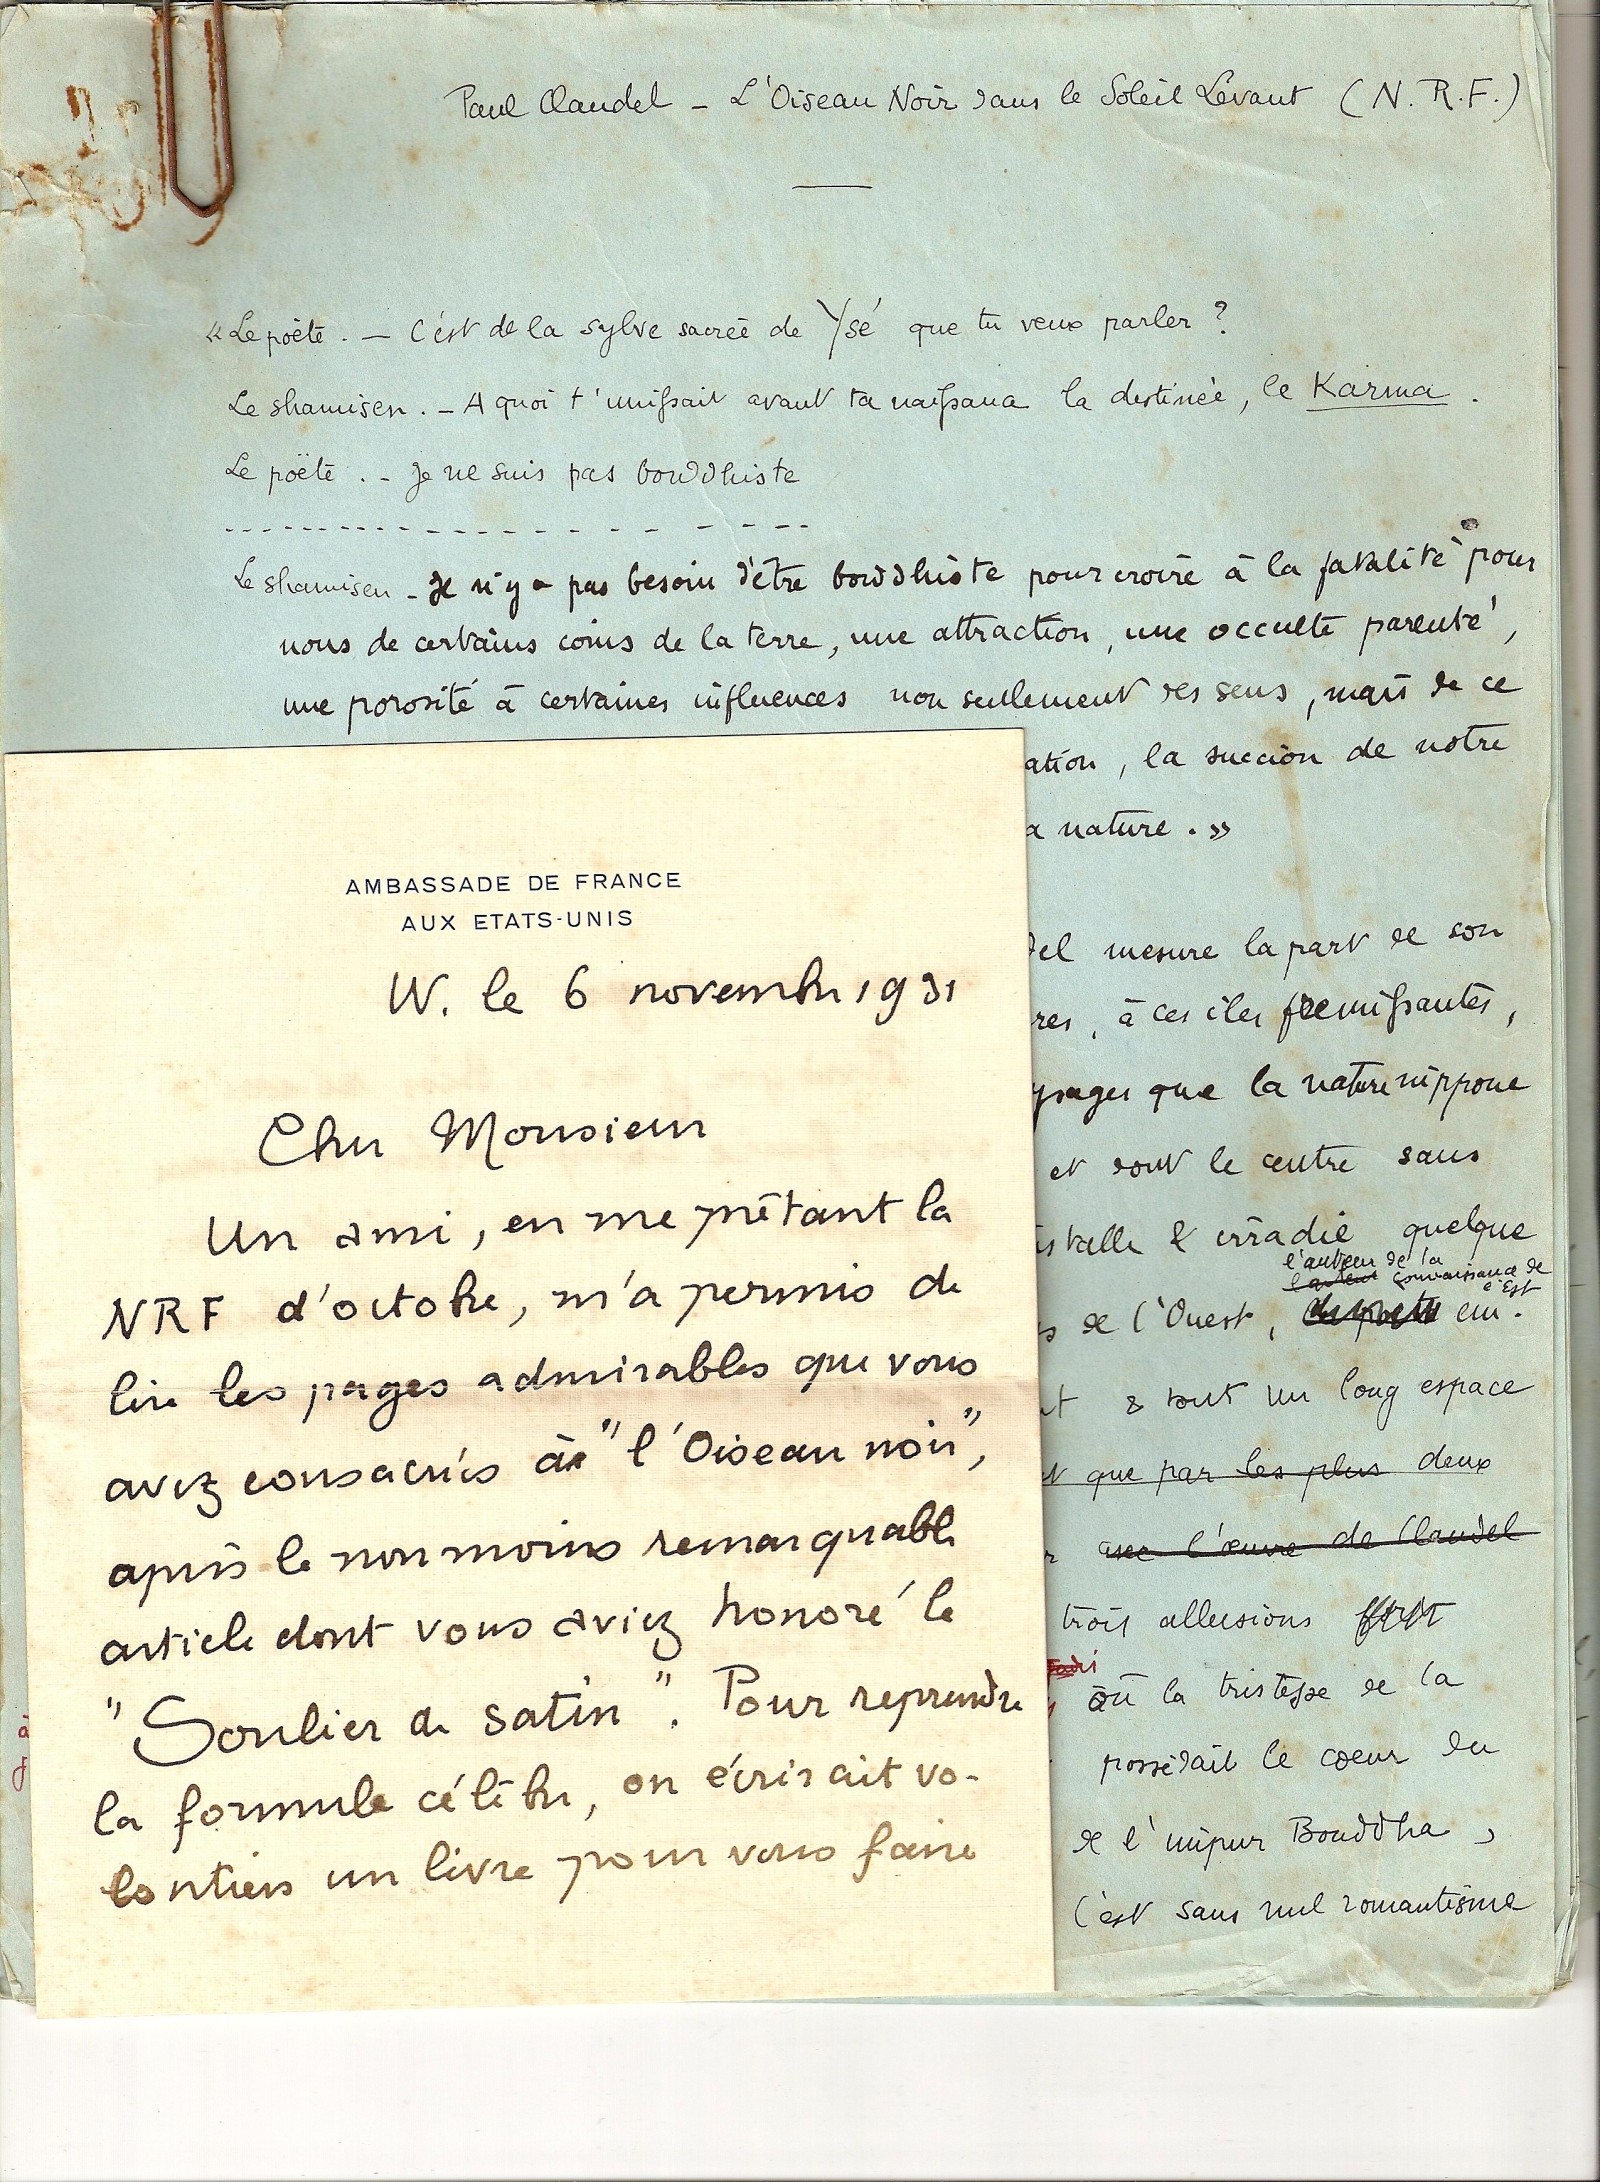 Paul Claudel – L'Oiseau Noir dans le Soleil Levant (N.R.F.)
« Le poète. – C'est de la sylve sacrée de Ysé que tu veux parler ?
Le shamisen. – A quoi t'unissait avant ta naissance la destinée, le Karma.
Le poëte. – Je ne suis pas bouddhiste
Le shamisen – Il n'y a pas besoin d'être bouddhiste pour croire à la fatalité pour
nous de certains coins de la terre, une attraction, une occulte parenté,
une porosité à certaines influences non seulement des sens, mais de ce
ation, la succion de notre
a nature. »
del mesure la part de son
res, à ces îles frémissantes,
ysages que la nature nippone
et dont le centre sans
stalle & irradie quelque
l'auteur de la
l'auteur Connaissance de
l'Est
s de l'Ouest, em-
t & tout un long espace
t que par les plus deux
r avec l'œuvre de Claudel
trois allusions
où la tristesse de la
possédait le coeur du
de l'impur Bouddha,
C'est sans nul romantisme
à
AMBASSADE DE FRANCE
AUX ETATS-UNIS
W. le 6 novembre 1931
Cher Monsieur
Un ami, en me prêtant la
NRF d'octobre, m'a permis de
lire les pages admirables que vous
avez consacrées à "l'Oiseau noir",
après le non moins remarquable
article dont vous aviez honoré le
"Soulier de satin". Pour reprendre
la formule célèbre, on écrirait vo-
lontiers un livre pour vous faire